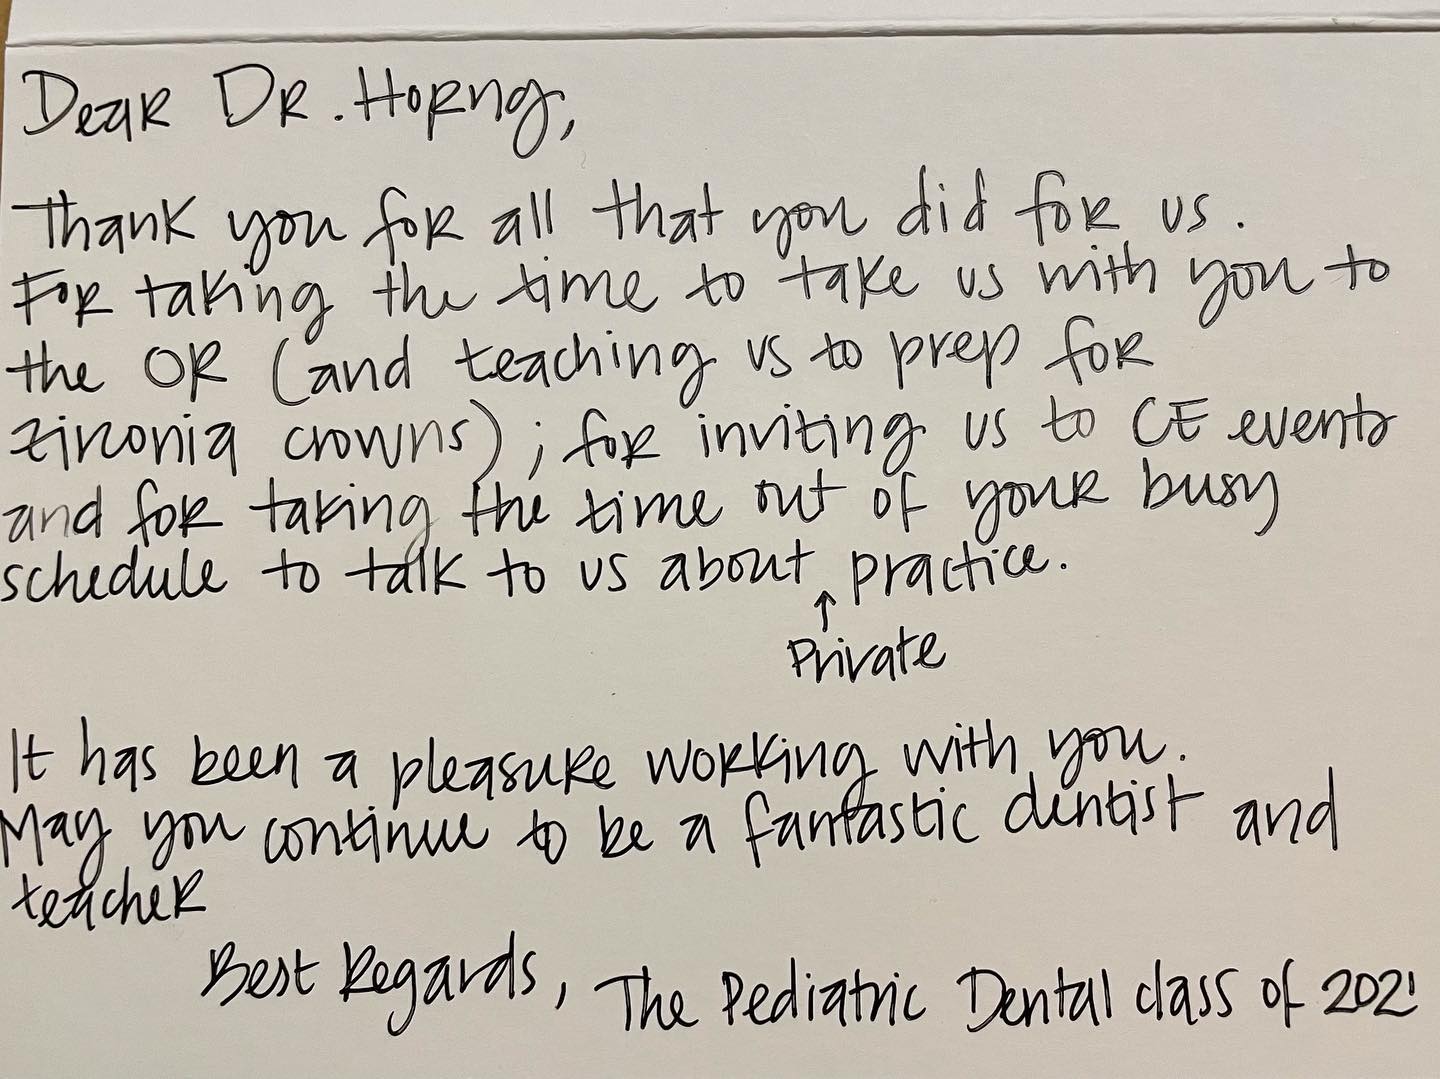 Dear Dr. Horng,
Thank you for all that you did for us.
For taking the time to take us with you to
the OR (and teaching us to prep for
zirconia crowns); for inviting us to CE events
and for taking the time out of your busy
schedule to talk to us about ↑ practice.
Private
It has been a pleasure working with you.
May you continue to be a fantastic dentist and
teacher
Best Regards, The Pediatric Dental class of 2021